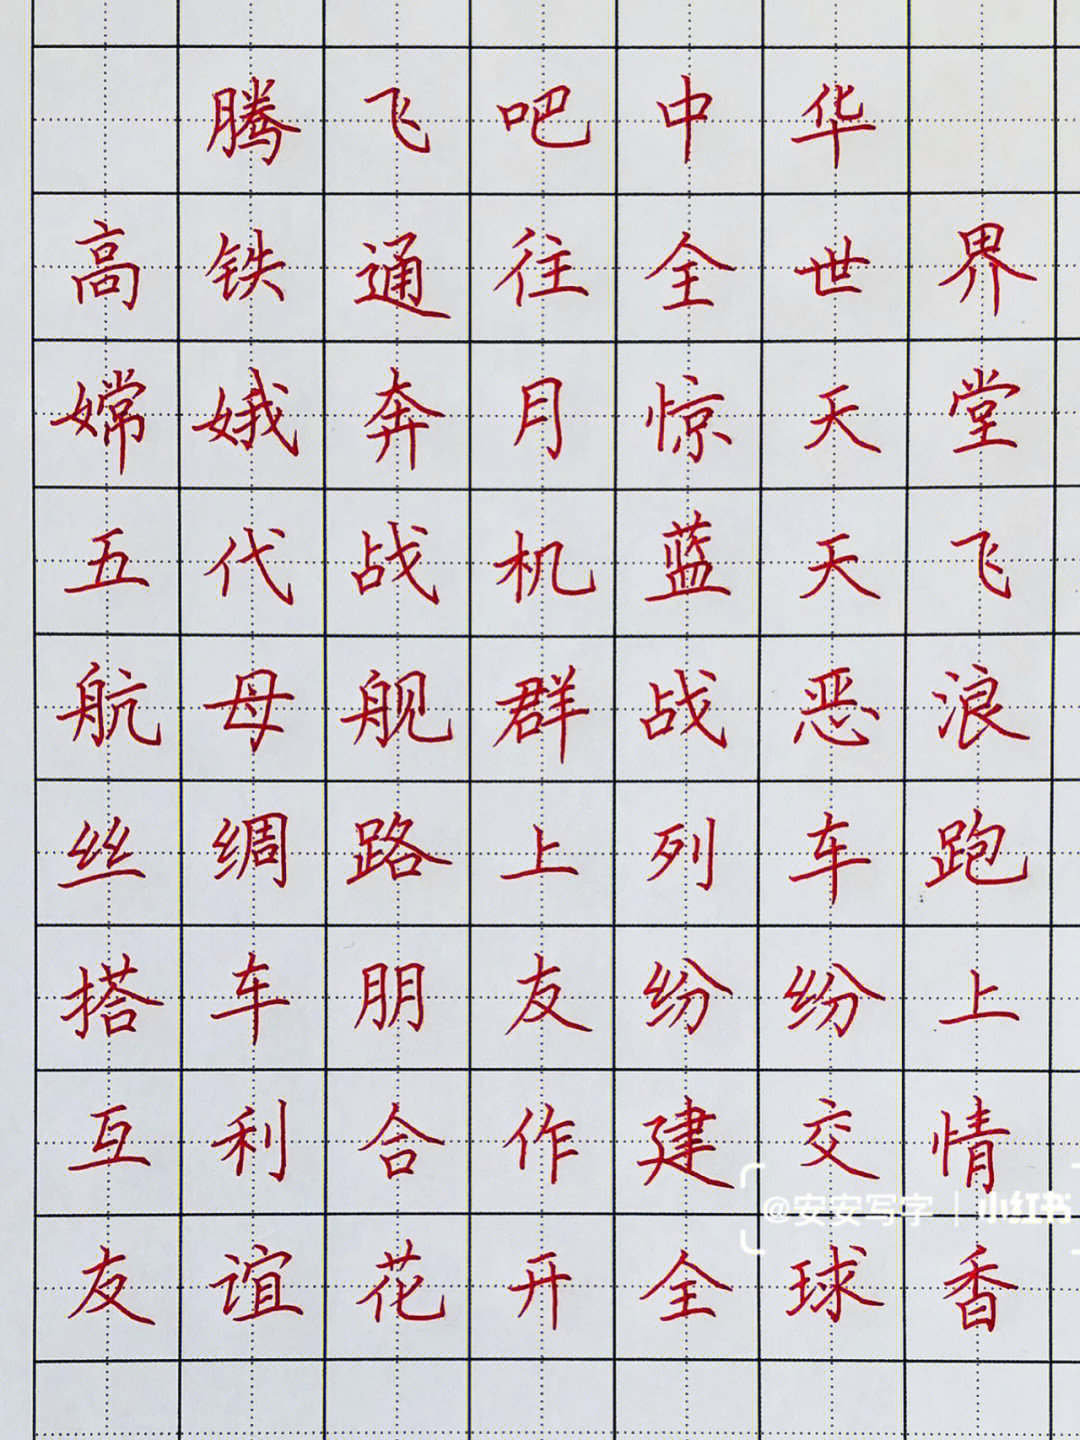 腾飞吧中华
高铁通往全世界
嫦娥奔月惊天堂
五代战机蓝天飞
航母舰群战恶浪
丝绸路上列车跑
搭车朋友纷纷上
互利合作建交情
@安安写字 | 小红书
友谊花开全球香